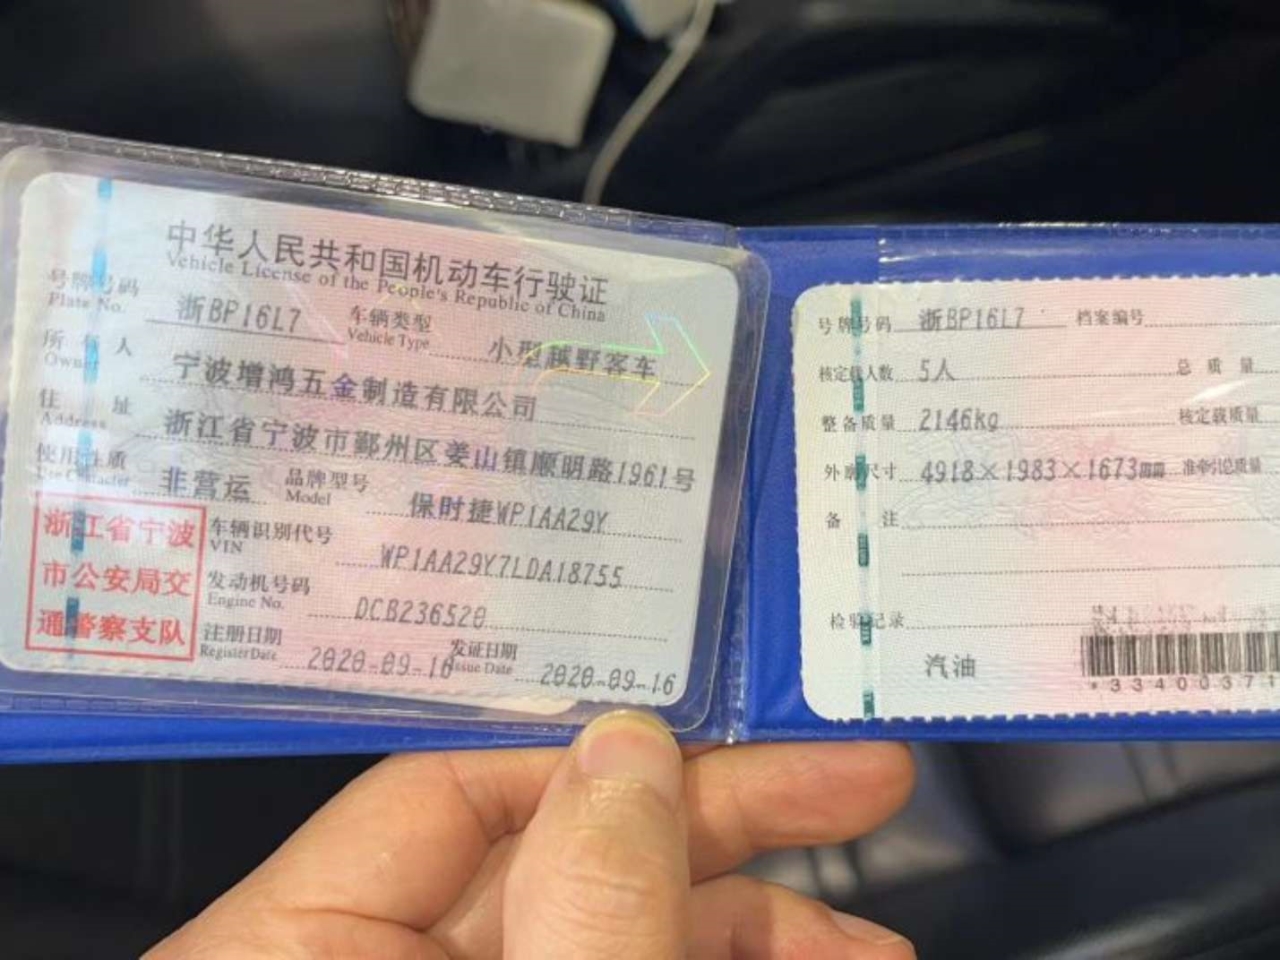 中华人民共和国机动车行驶证
Vehicle License of the People's Republic of China
号牌号码 浙BP16L7 车辆类型 小型越野客车
Plate No. Vehicle Type
所有人 宁波增鸿五金制造有限公司
Owner
住址 浙江省宁波市鄞州区姜山镇顺明路1961号
Address
使用性质 非营运 品牌型号 保时捷WP1AA29Y
Use Character Model
浙江省宁波
市公安局交
通警察支队
车辆识别代号 WP1AA29Y7LDA18755
VIN
发动机号码 DCB236520
Engine No.
注册日期 2020-09-16 发证日期 2020-09-16
Register Date Issue Date
号牌号码 浙BP16L7 档案编号
核定载人数 5人 总质量
整备质量 2146kg 核定载质量
外廓尺寸 4918×1983×1673mm 准牵引总质量
备注
检验记录
汽油
*33400371